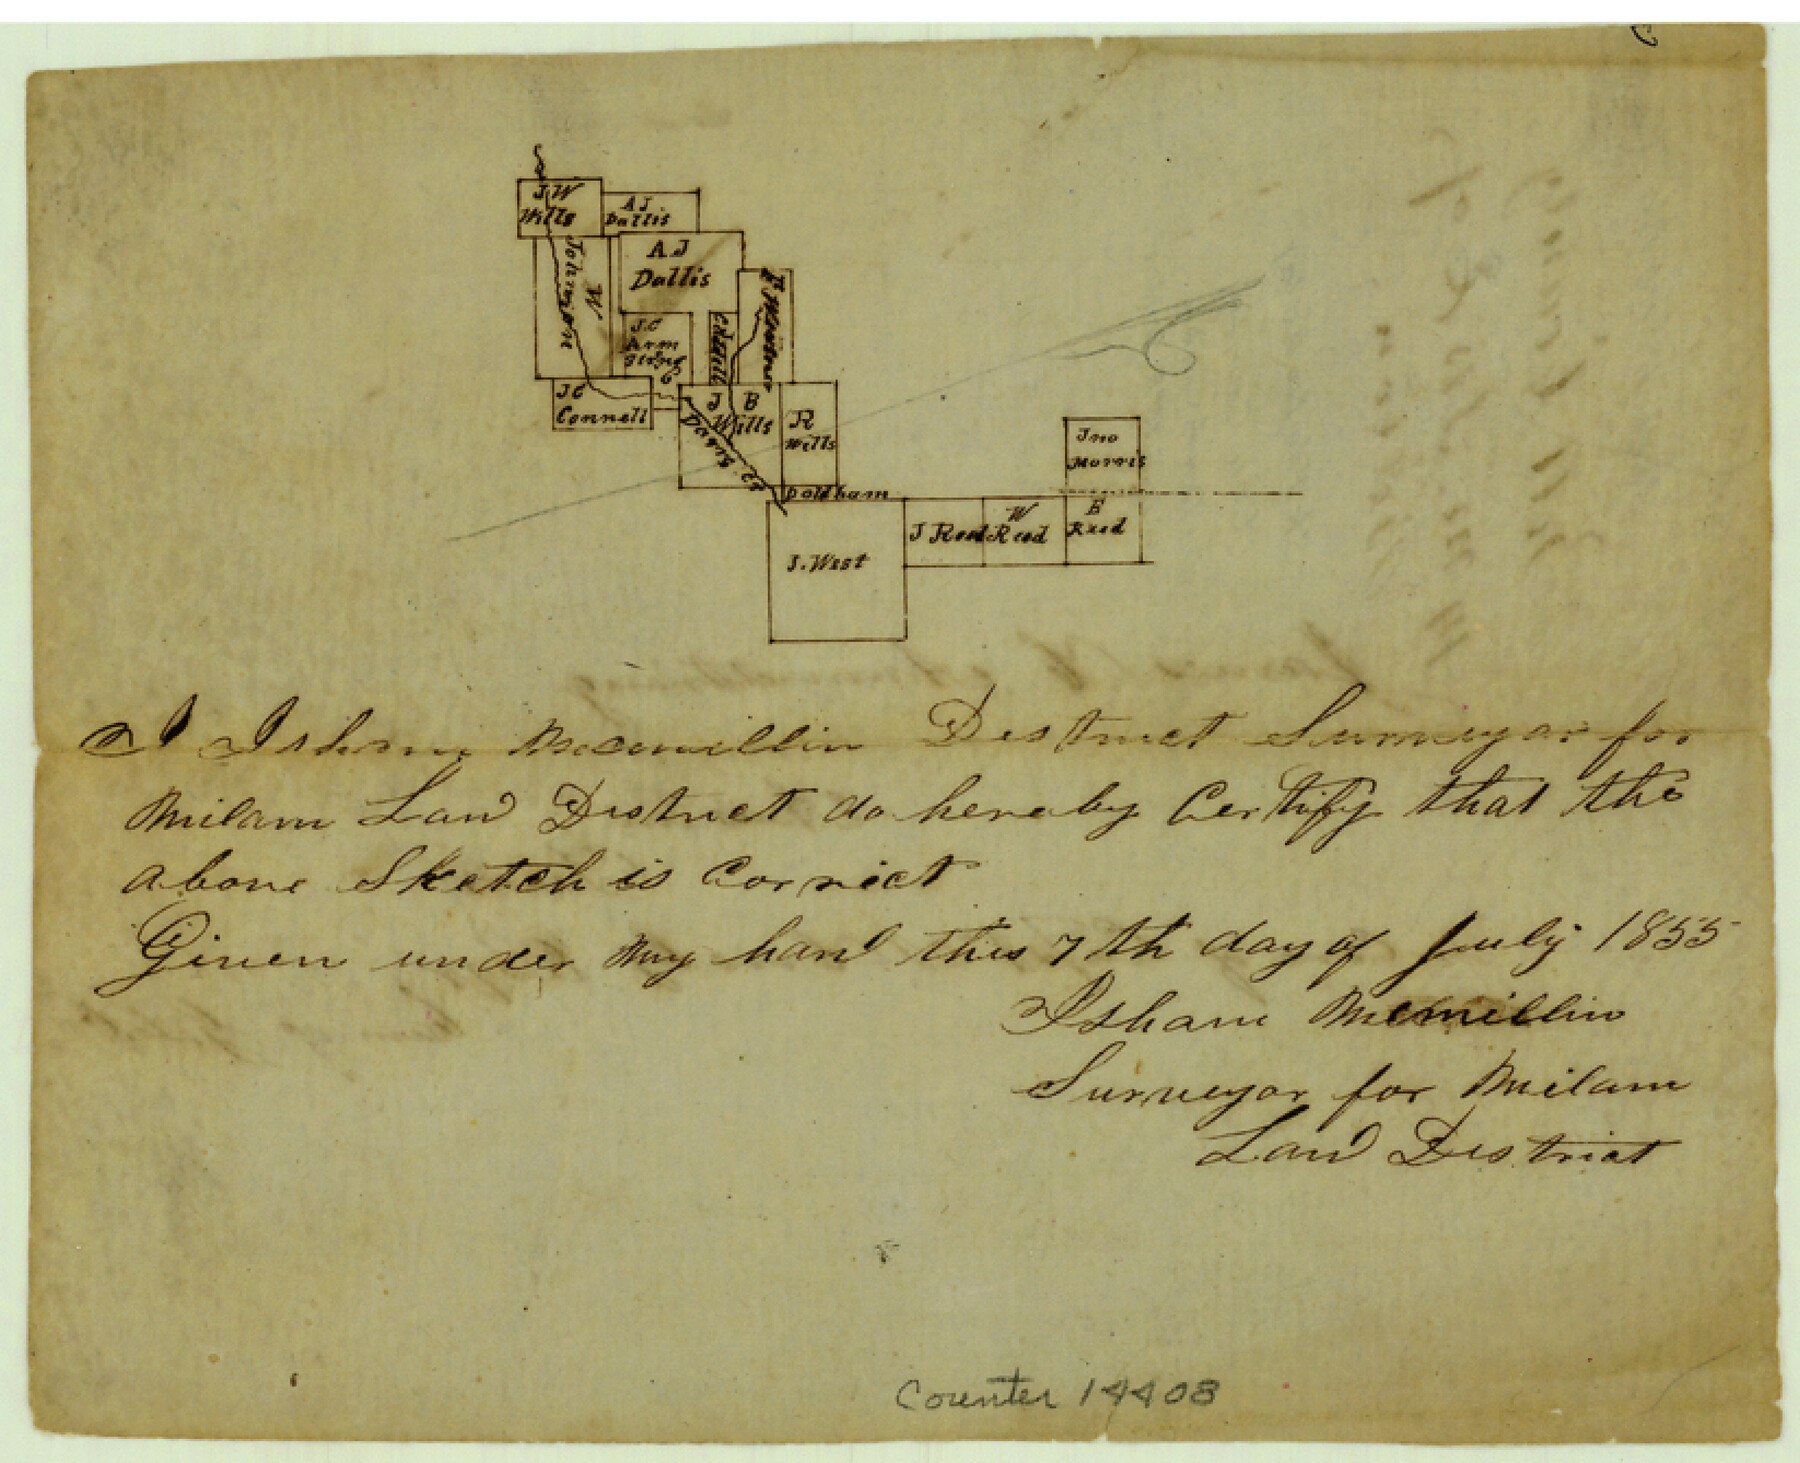 J W
Wills
A J
Dallis
A J
Dallis
W
Johnson
J. C
Arm
strong
J C
Connell
J B
Wills
R
Wills
Davis
D oldham
J. West
J Reed
W
Reed
E
Reed
Jno
Morris
I Isham Mcmillin District Surveyor for
Milam Land District do hereby Certify that the
above Sketch is Correct
Given under my hand this 7th day of July 1855
Isham Mcmillin
Surveyor for Milam
Land District
Counter 14408